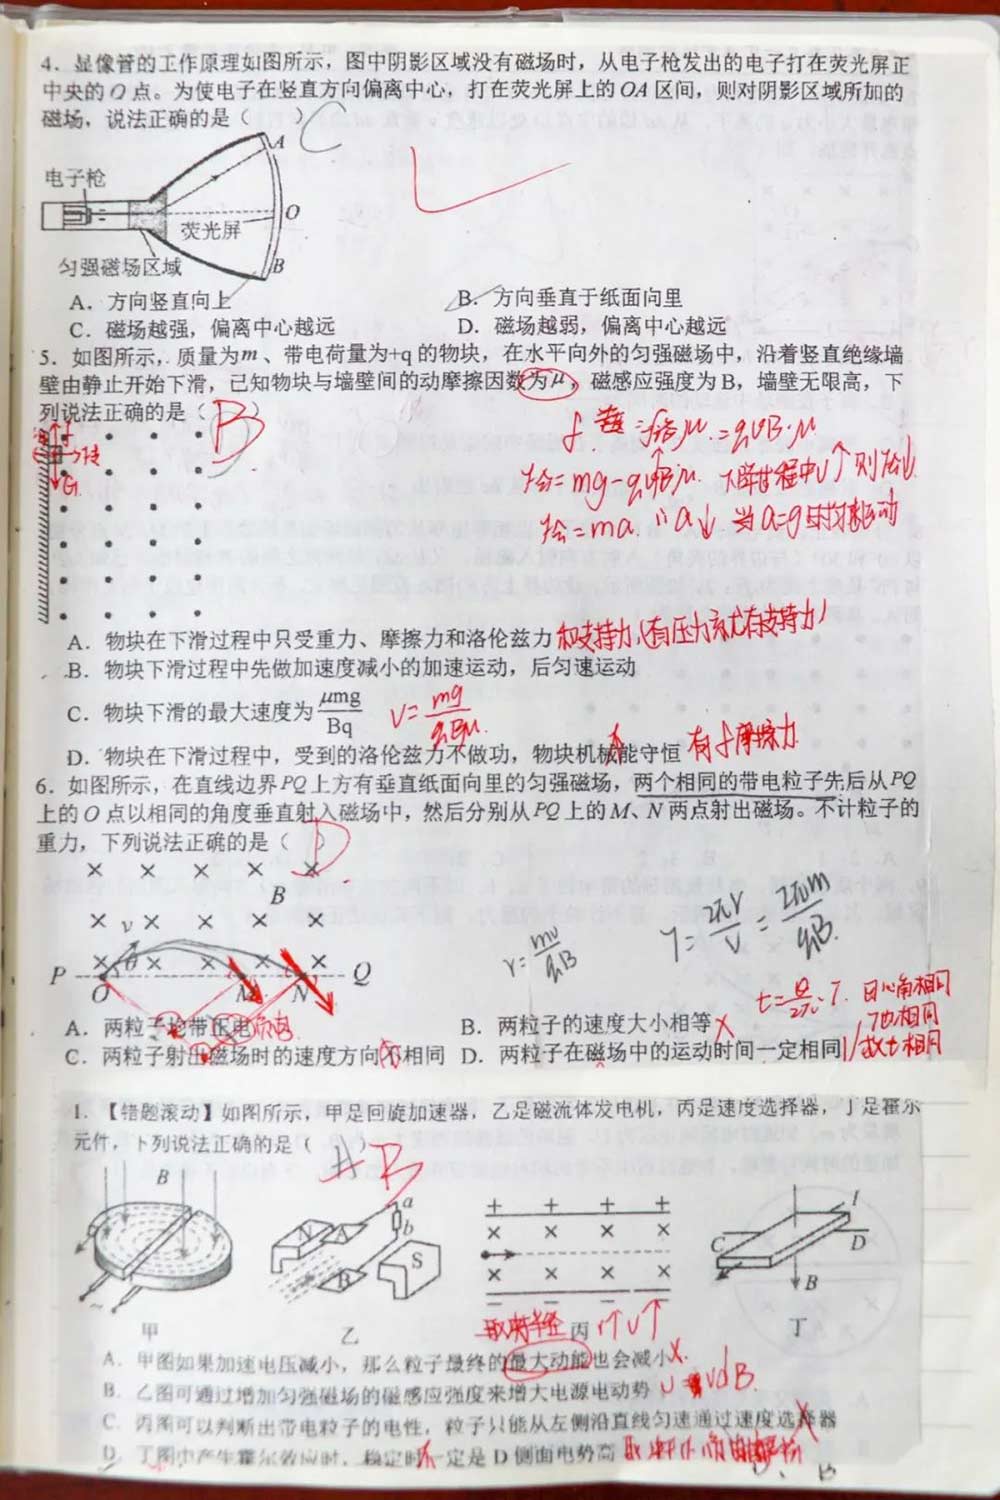 4. 显像管的工作原理如图所示，图中阴影区域没有磁场时，从电子枪发出的电子打在荧光屏正
中央的 O 点。为使电子在竖直方向偏离中心，打在荧光屏上的 OA 区间，则对阴影区域所加的
磁场，说法正确的是（ C
A
电子枪
O
荧光屏
B
匀强磁场区域
A. 方向竖直向上 B. 方向垂直于纸面向里
C. 磁场越强，偏离中心越远 D. 磁场越弱，偏离中心越远
5. 如图所示，质量为m、带电荷量为+q 的物块，在水平向外的匀强磁场中，沿着竖直绝缘墙
壁由静止开始下滑，已知物块与墙壁间的动摩擦因数为μ，磁感应强度为 B，墙壁无限高，下
列说法正确的是（ B ）
=qvB·μ
F合=mg-qvBμ. 下降过程中v↑ 则F合↓
F合=ma. ∴a↓
A. 物块在下滑过程中只受重力、摩擦力和洛伦兹力 和支持力
B. 物块下滑过程中先做加速度减小的加速运动，后匀速运动
C. 物块下滑的最大速度为 μmg/Bq v=mg/qBμ
D. 物块在下滑过程中，受到的洛伦兹力不做功，物块机械能守恒 有f摩擦力
6. 如图所示，在直线边界 PQ 上方有垂直纸面向里的匀强磁场，两个相同的带电粒子先后从 PQ
上的 O 点以相同的角度垂直射入磁场中，然后分别从 PQ 上的 M、N 两点射出磁场。不计粒子的
重力，下列说法正确的是（ D ）
B
v
θ
P O M N Q
r=mv/qB
T=2πr/v=2πm/qB
t=θ/2π·T. 圆心角相同
T也相同
故t相同
A. 两粒子均带正电 负电 B. 两粒子的速度大小相等 X
C. 两粒子射出磁场时的速度方向不相同 D. 两粒子在磁场中的运动时间一定相同
1. 【错题滚动】如图所示，甲是回旋加速器，乙是磁流体发电机，丙是速度选择器，丁是霍尔
元件，下列说法正确的是（ A B ）
B
N A a b S B
+ + + +
C I D B
甲 乙 丙 丁
取决半径 r↑v↑
A. 甲图如果加速电压减小，那么粒子最终的最大动能也会减小 X.
B. 乙图可通过增加匀强磁场的磁感应强度来增大电源电动势 vdB.
C. 丙图可以判断出带电粒子的电性，粒子只能从左侧沿直线匀速通过速度选择器
D. 丁图中产生霍尔效应时，稳定时一定是 D 侧面电势高